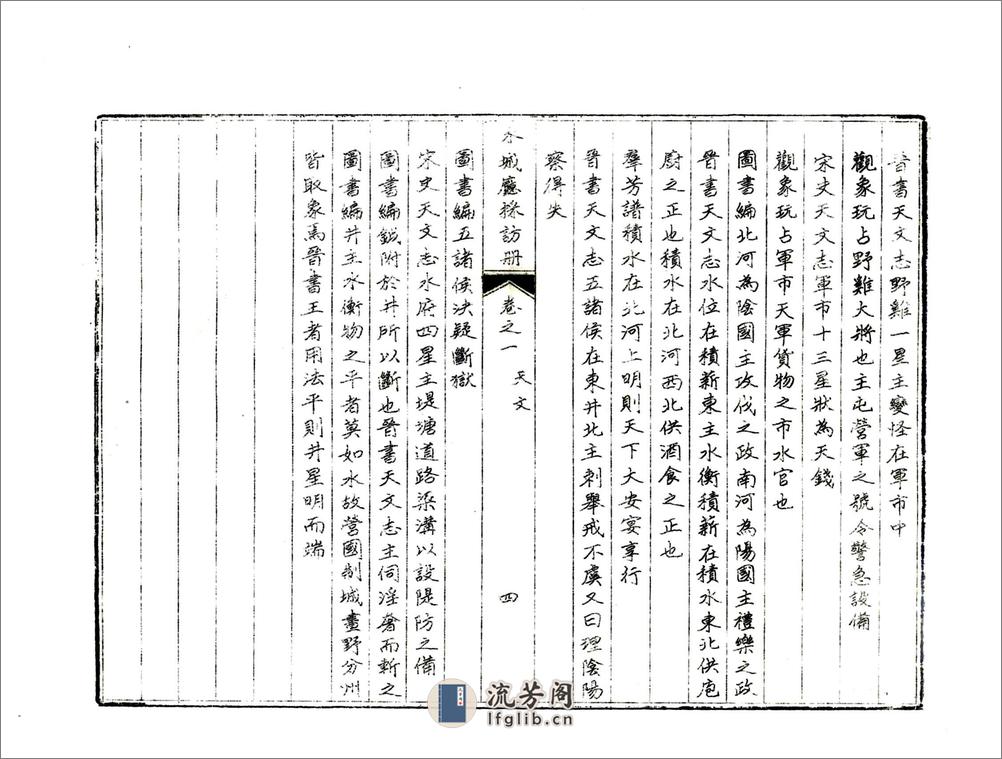 晉書天文志野雞一星主變怪在軍市中
觀象玩占野雞大將也主屯營軍之號令警急設備
宋史天文志軍市十三星狀為天錢
觀象玩占軍市天軍貨物之市水官也
圖書編北河為陰國主攻伐之政南河為陽國主禮樂之政
晉書天文志水位在積薪東主水衡積薪在積水東北供庖
廚之正也積水在北河西北供酒食之正也
羣芳譜積水在北河上明則天下大安宴享行
晉書天文志五諸侯在東井北主刺舉戒不虞又曰理陰陽
察得失
水城廳採訪冊
卷之一
天文
四
圖書編五諸侯決疑斷獄
宋史天文志水府四星主堤塘道路梁溝以設隄防之備
圖書編鉞附於井所以斷也晉書天文志主伺淫奢而斬之
圖書編井主水衡物之平者莫如水故營國制城畫野分州
皆取象焉晉書王者用法平則井星明而端
流芳阁
lfglib.cn